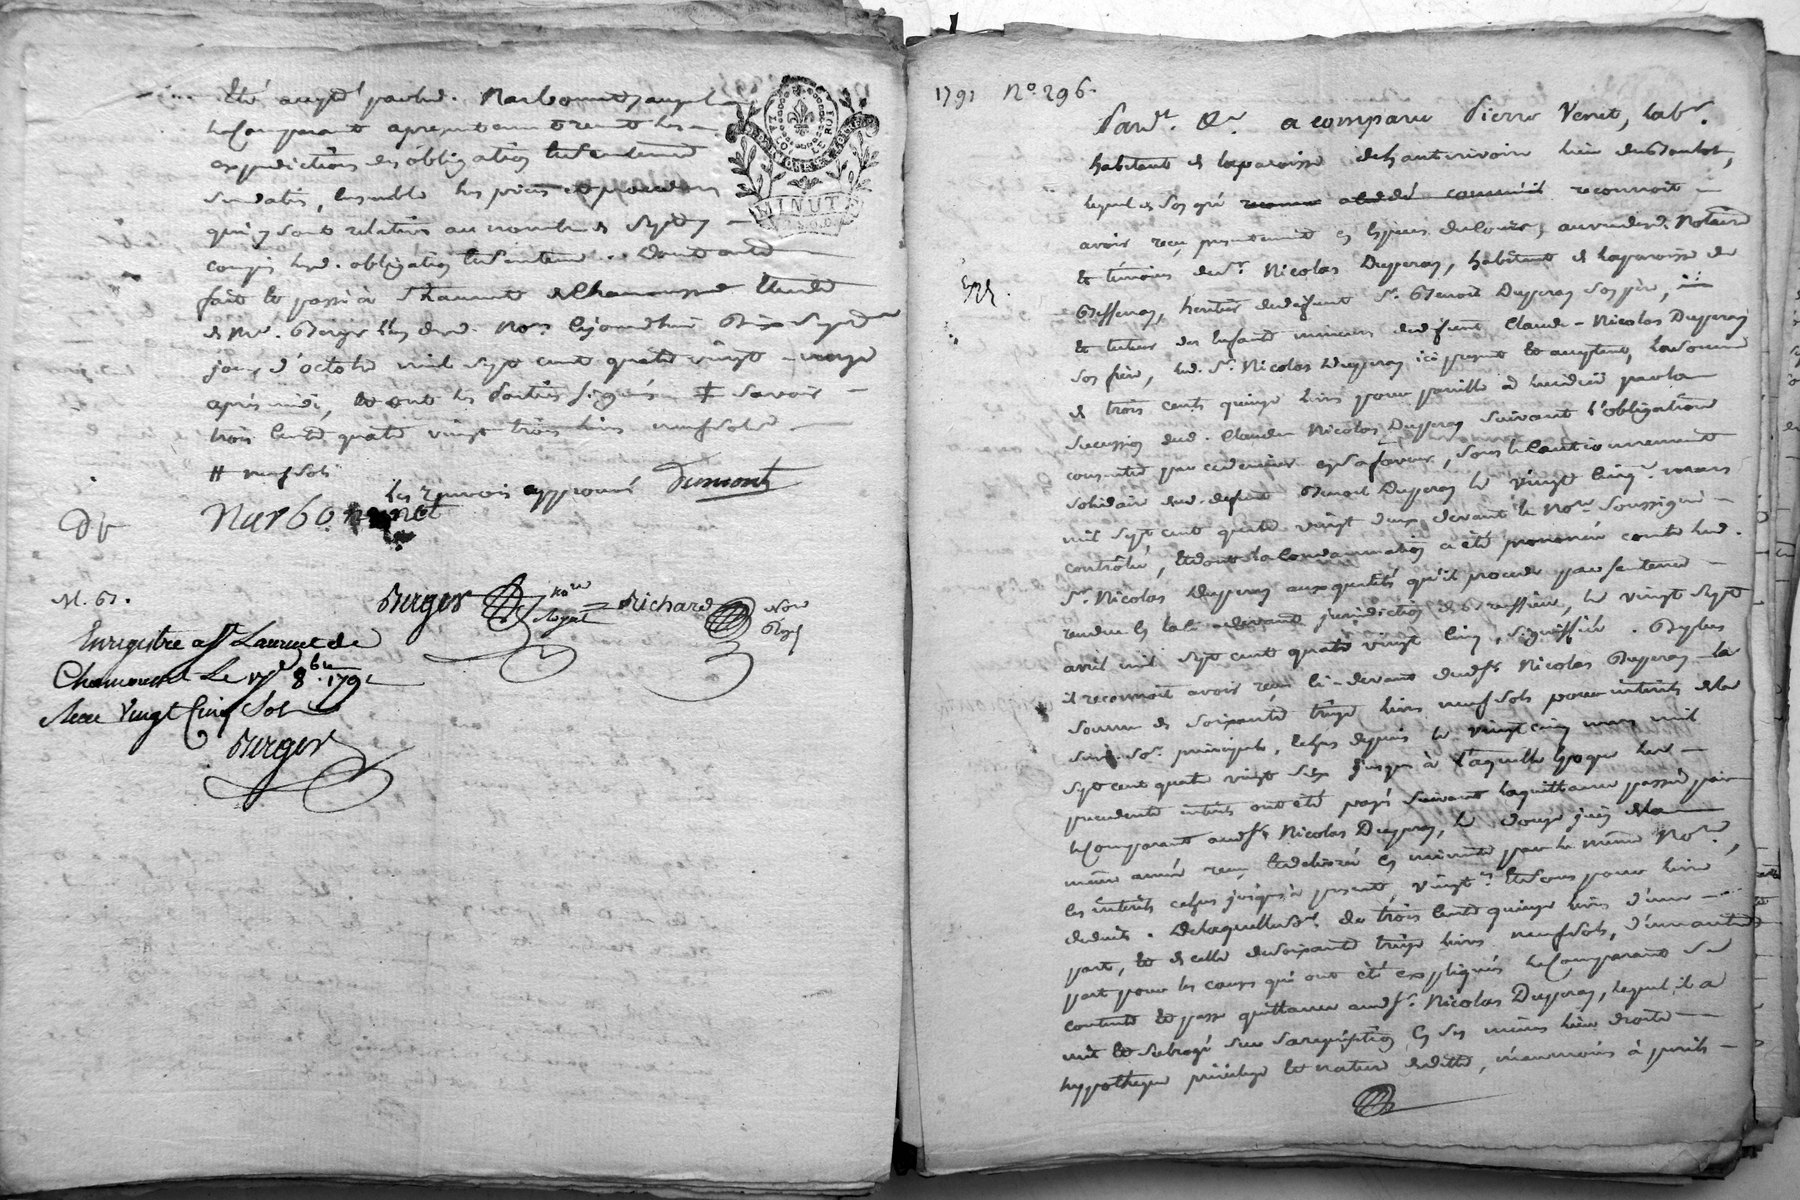 été accepté par led. Narbonnet, auquel
le Comparant a présentement remis les
expéditions des obligation et sentence
susdatés, ensemble les pièces et procédures
qui y sont relatives au nombre de sept
compris led. obligation et sentence. Dont acte
fait et passé à St. Laurent de Chamousset Etude
de Me. Berger l'un desd. Nores. cejourdhui dix sept
jour d'octobre mil sept cent quatre vingt onze
après midi, et ont les parties signés # savoir
trois cents quatre vingt trois livres neuf sols
# neuf sols
les renvois approuvé Dumont
Narbonnet
M. B.
Berger Nore Royal Richard Nore Royl
Enregistré a St. Laurent de
Chamousset Le 8bre. 1791
Reçu Vingt Cinq Sols
Berger
MINUTE
LA LOI LE ROI
1791 No. 296.
Pardt. &a. a comparu Pierre Venet, labr.
habitant de la paroisse de hauterivoire lieu du
lequel de son gré reconnoit
avoir reçu présentement en espèces du cours, au vu desd. Notaires
et témoins de Sr. Nicolas Dupperay, habitant de la paroisse de
Bessenay, héritier de defunt Sr. Benoit Dupperay son père,
et tuteur des enfants mineurs de defunt Claude-Nicolas Dupperay
son frère, led. Sr. Nicolas Dupperay ici present et acceptant, la somme
de trois cents quinze livres pour pareille à lui düe par la
succession dud. Claude Nicolas Dupperay suivant l'obligation
consentie par ce dernier en sa faveur, sous le cautionnement
solidaire dud. defunt Benoit Dupperay le vingt cinq mars
mil sept cent quatre vingt deux devant le Nore. soussigné
contrôlée, et dont la condamnation a été prononcée contre led.
Sr. Nicolas Dupperay aux qualités qu'il procede par sentence
rendue en la ci devant juridiction de le vingt sept
avril mil sept cent quatre vingt cinq, signiffiée. De plus
il reconnoit avoir reçu ci-devant dud. Sr. Nicolas Dupperay la
somme de soixante treize livres neuf sols pour intérets de la
susd. Se. principale, echus depuis le vingt cinq mars mil
sept cent quatre vingt six jusqu'à laquelle époque les
precedents intérets ont été payés suivant la quittance passée par
le Comparant aud. Sr. Nicolas Dupperay, le douze juin de la
même année reçu et delivrée en minute par le même Nore.,
les intérets echus jusqu'à present, vingt. et sous pour livre
deduits. De laquelle Se. de trois cents quinze livres d'une
part, et de celle de soixante treize livres neuf sols, d'une autre
part pour les causes qui ont été expliquées le Comparant se
contente et passe quittance aud. Sr. Nicolas Dupperay, lequel il a
mis et subrogé sur sa requisition en ses mêmes lieu droits
hypothèque privilege et nature de dette, néanmoins à perils